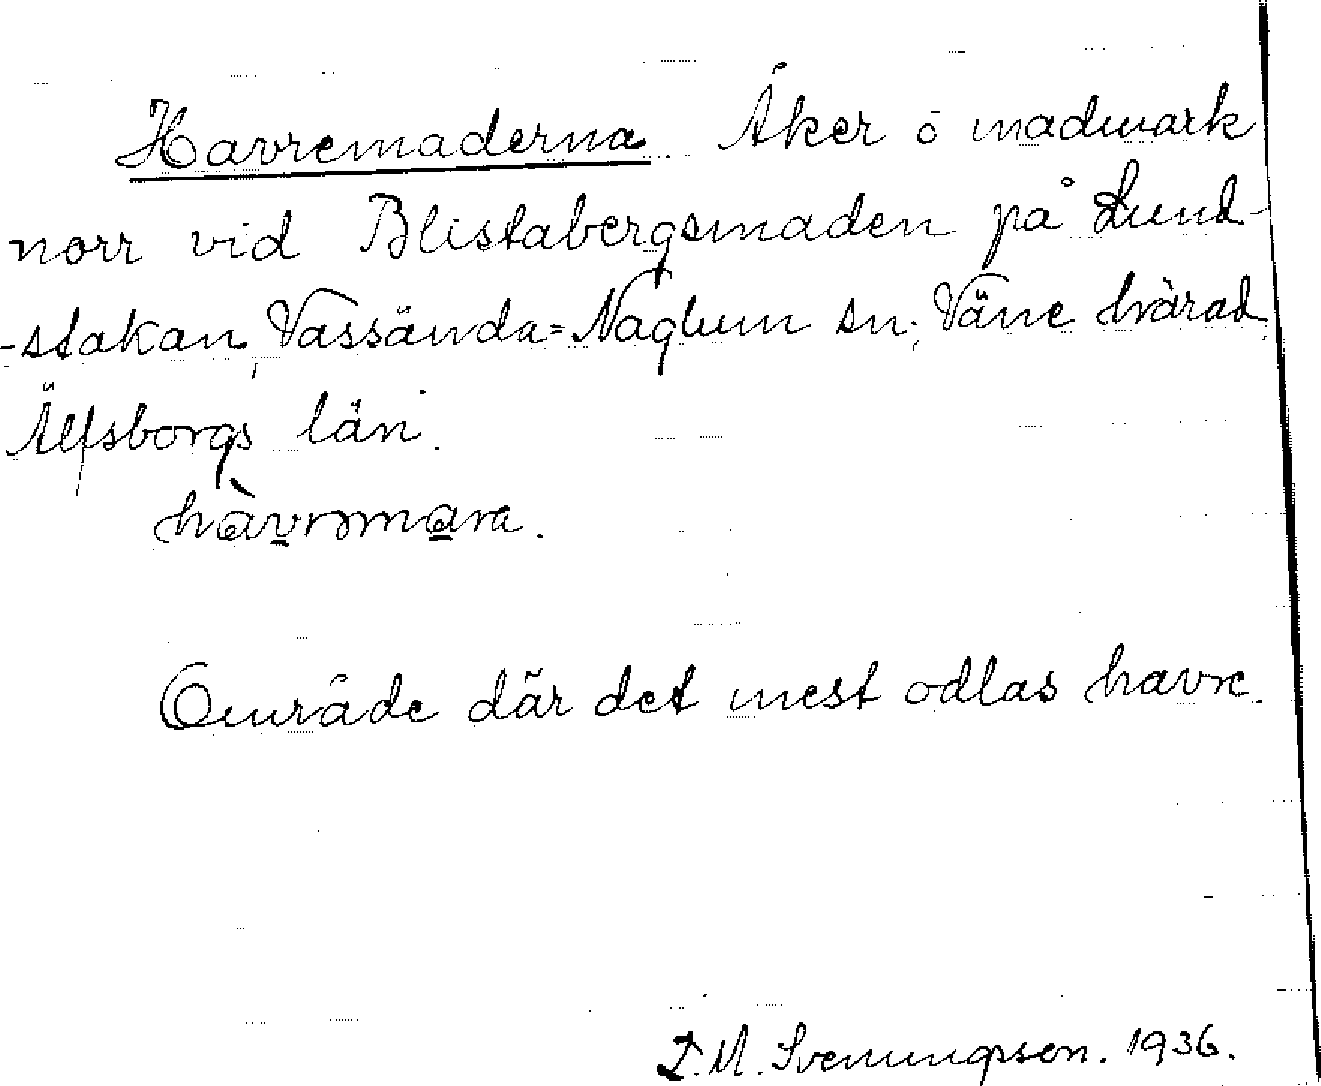 Havremaderna Åker o madmark
norr vid Blistabergsmaden på Lund-
-stakan, Vassända=Naglum sn, Väne härad,
Älfsborgs län.
Område där det mest odlas havre.
Svenungsson. 1936.